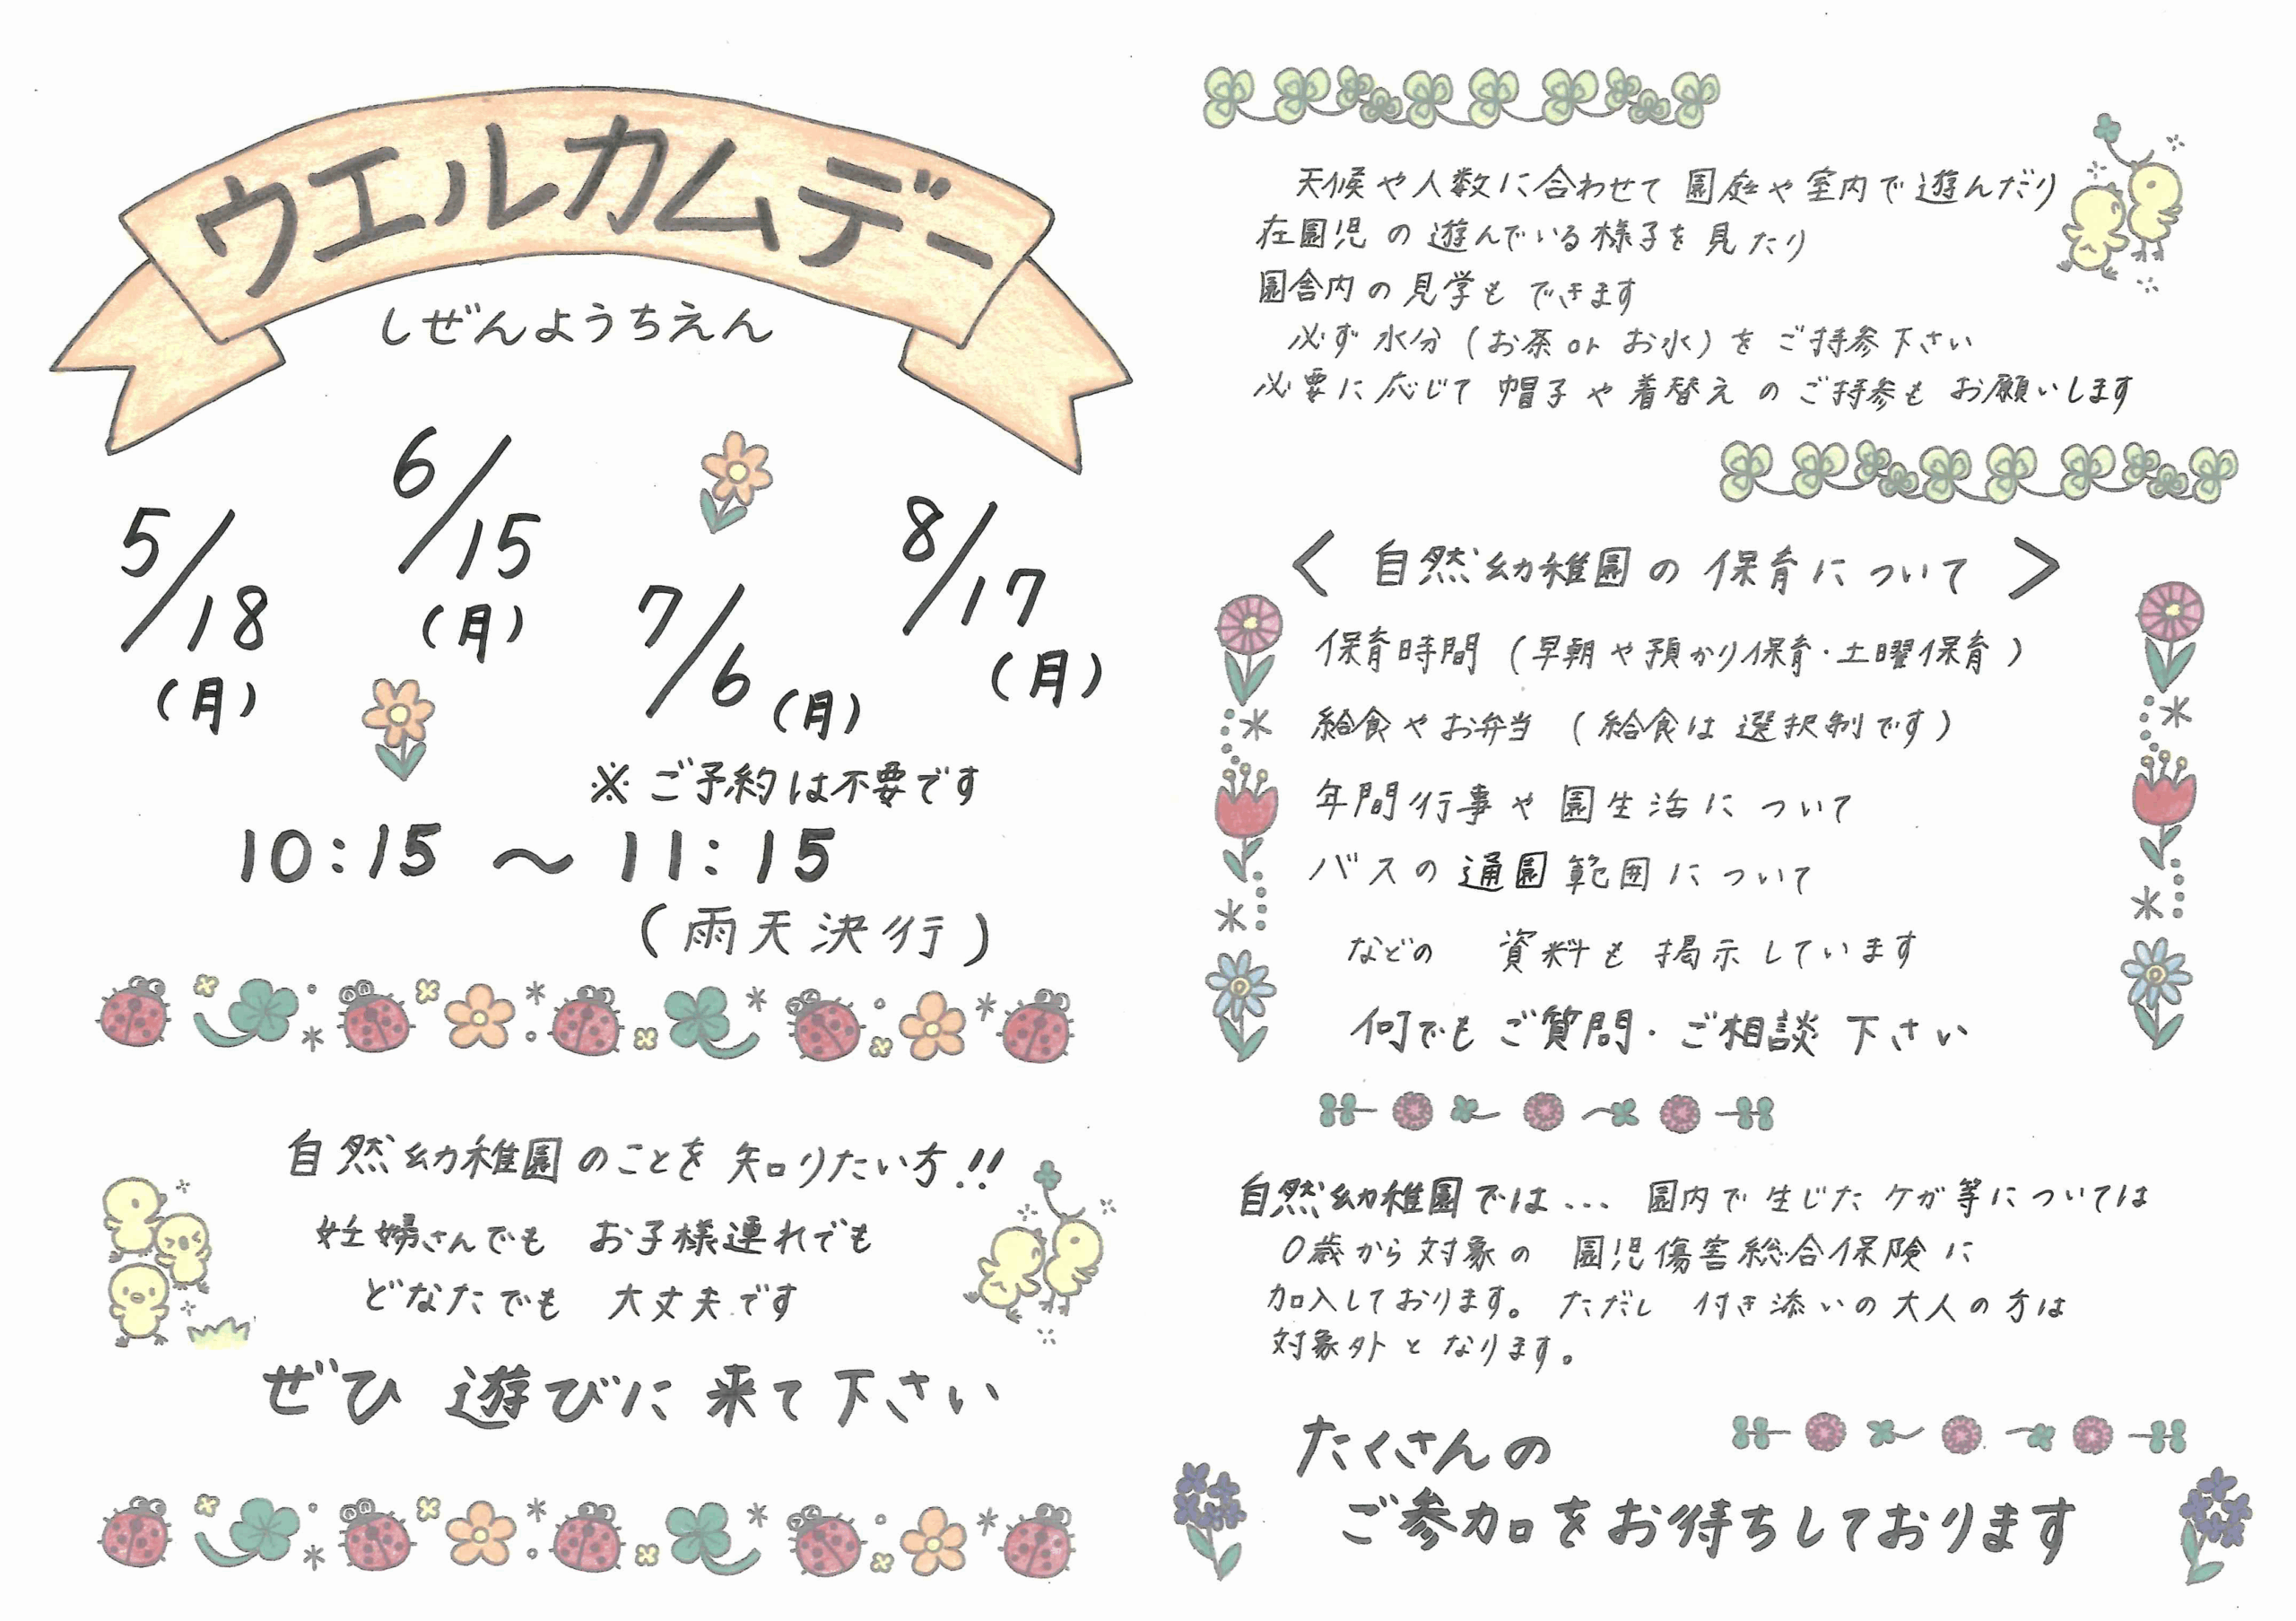 ウエルカムデー
しぜんようちえん
5/18
(月)
6/15
(月)
7/6(月)
8/17
(月)
※ご予約は不要です
10:15 ～ 11:15
(雨天決行)
自然幼稚園のことを 知りたい方!!
妊婦さんでも お子様連れでも
どなたでも 大丈夫です
ぜひ 遊びに 来て下さい
天候や人数に合わせて 園庭や室内で遊んだり
在園児の遊んでいる様子を見たり
園舎内の見学も できます
必ず水分(お茶orお水)を ご持参下さい
必要に応じて 帽子や着替えのご持参も お願いします
<自然幼稚園の保育について>
保育時間(早朝や預かり保育・土曜保育)
給食やお弁当 (給食は 選択制です)
年間行事や園生活について
バスの通園範囲について
などの 資料も 掲示しています
何でも ご質問・ご相談 下さい
自然幼稚園では... 園内で生じたケガ等については
0歳から対象の 園児傷害総合保険に
加入しております。ただし 付き添いの大人の方は
対象外と なります。
たくさんの
ご参加をお待ちしております